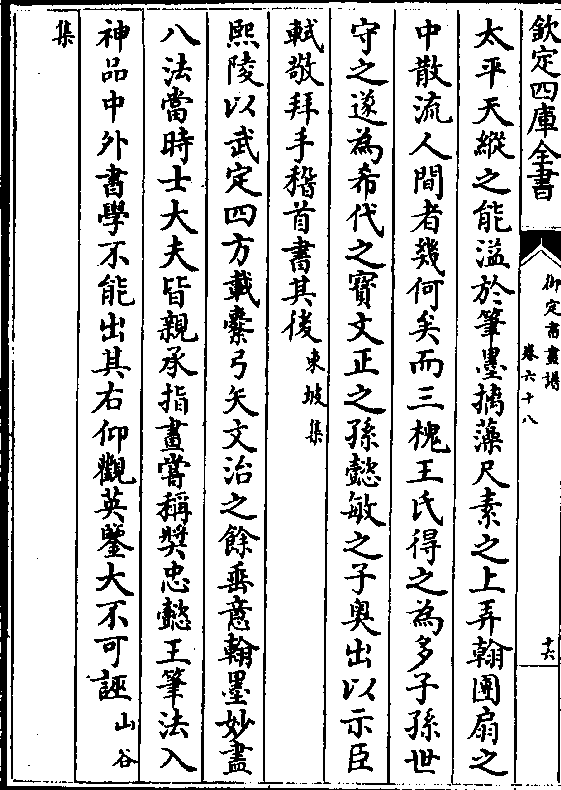 欽定四庫全書
御定書畫譜
卷六十八
十六
太平天縱之能溢於筆墨摛藻尺素之上弄翰團扇之
中散流人間者幾何矣而三槐王氏得之為多子孫世
守之遂為希代之寶文正之孫懿敏之子奥出以示臣
軾敬拜手稽首書其後東坡集
熙陵以武定四方載櫜弓矢文治之餘垂意翰墨妙盡
八法當時士大夫皆親承指畫嘗稱奬忠懿王筆法入
神品中外書學不能出其右仰觀英鑒大不可誣山谷
集